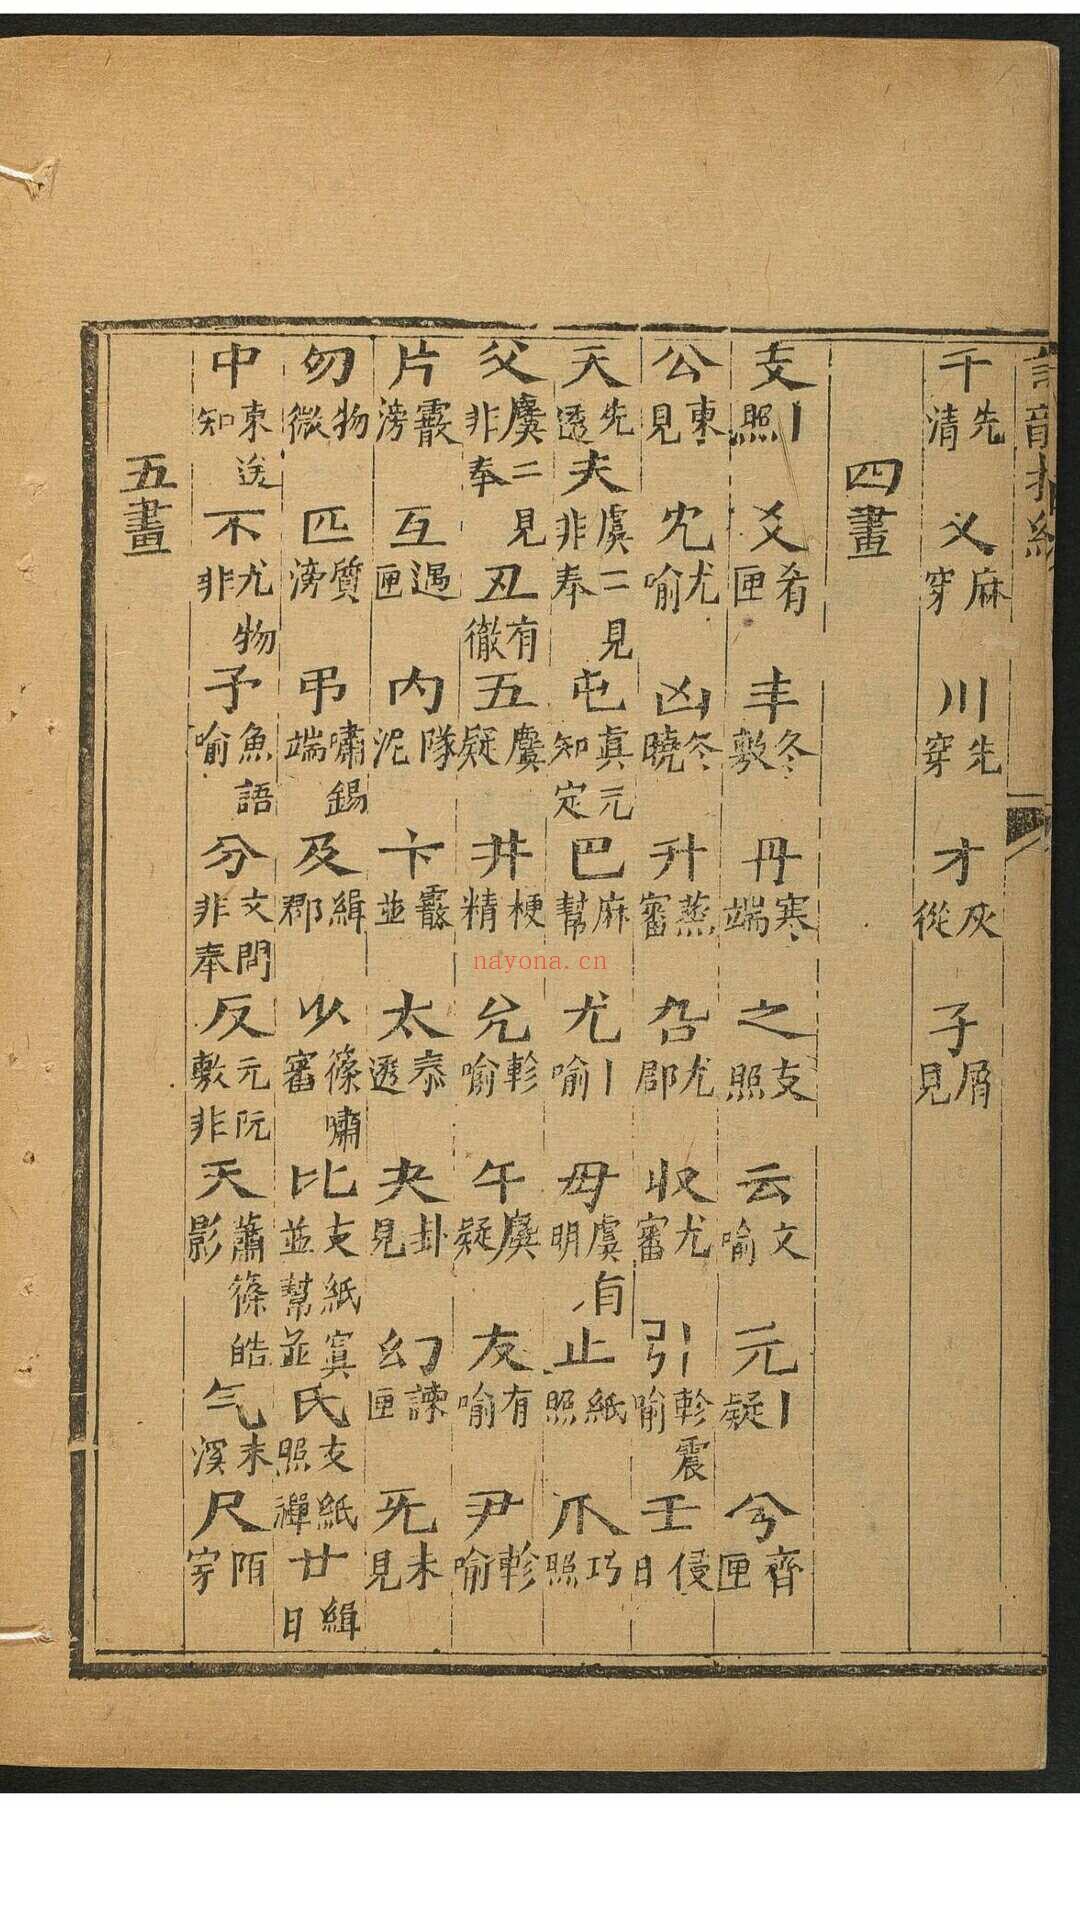 千 先清 义 麻穿 川 先穿 才 灰從 孑 屑見
四畫
支 丨照 爻 肴匣 丰 冬敷 丹 寒端 之 支照 云 文喻 元 丨疑 兮 齊匣
公 東見 冘 尤喻 凶 冬曉 升 蒸審 厹 尤郡 收 尤審 引 軫震喻 壬 侵日
天 先透 夫 虞二見非奉 屯 眞元知定 巴 麻幫 尤 丨喻 毋 虞有明 止 紙照 爪 巧照
父 麌二見非奉 丑 有徹 五 麌疑 井 梗精 允 軫喻 午 麌疑 友 有喻 尹 軫喻
片 霰滂 互 遇匣 内 隊泥 卞 霰並 太 泰透 夬 卦見 幻 諫匣 旡 未見
勿 物微 匹 質滂 弔 嘯錫端 及 緝郡 少 篠嘯審 比 支紙寘並幫並 氏 支紙照禪 廿 緝日
中 東送知 不 尤物非 予 魚語喻 分 文問非奉 反 元阮敷非 夭 蕭篠皓影 气 未溪 尺 陌穿
五畫
nayona.cn